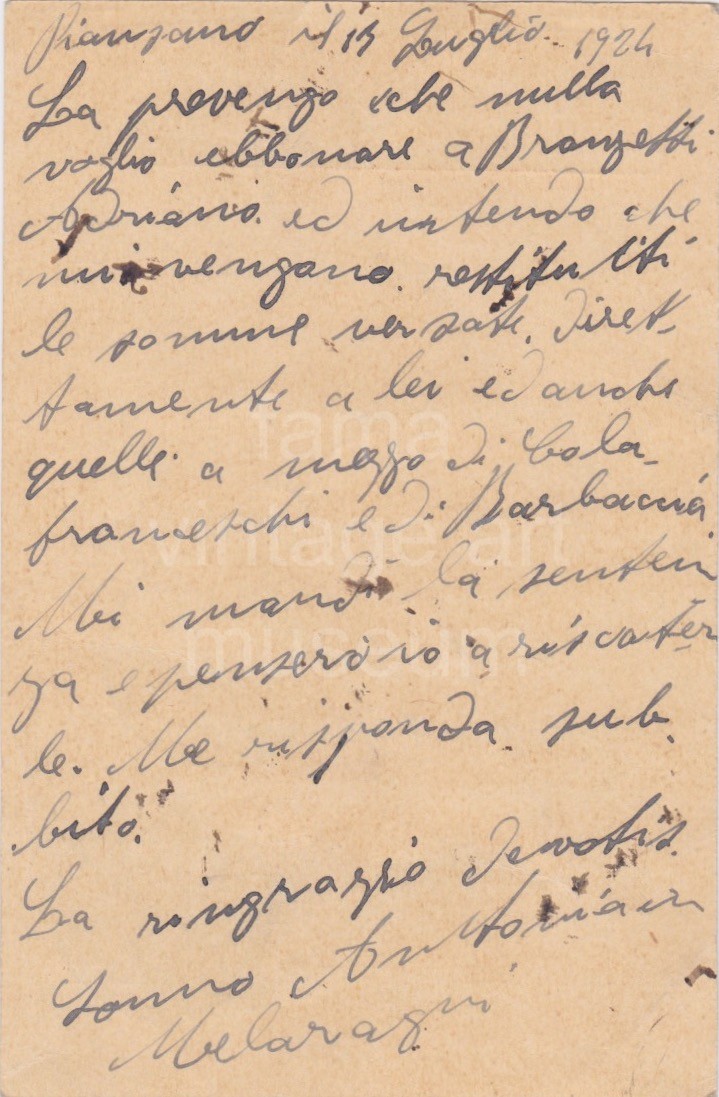 Pianzano il 15 Luglio 1924
La prevengo che nulla
voglio ebbonare a Branzetti
Adriano. ed intendo che
mi vengano. restituiti
le somme versate. diret-
tamente a lei ed anche
quelle a mezzo di Cola-
franceschi e di Barbaccia
Mi mandi la senten
za e penserò io a riscoter-
le. Me risponda sub
bito.
La ringrazzio devotis.
Sonno Antonia
Melaragni
fama
vintage art
museum